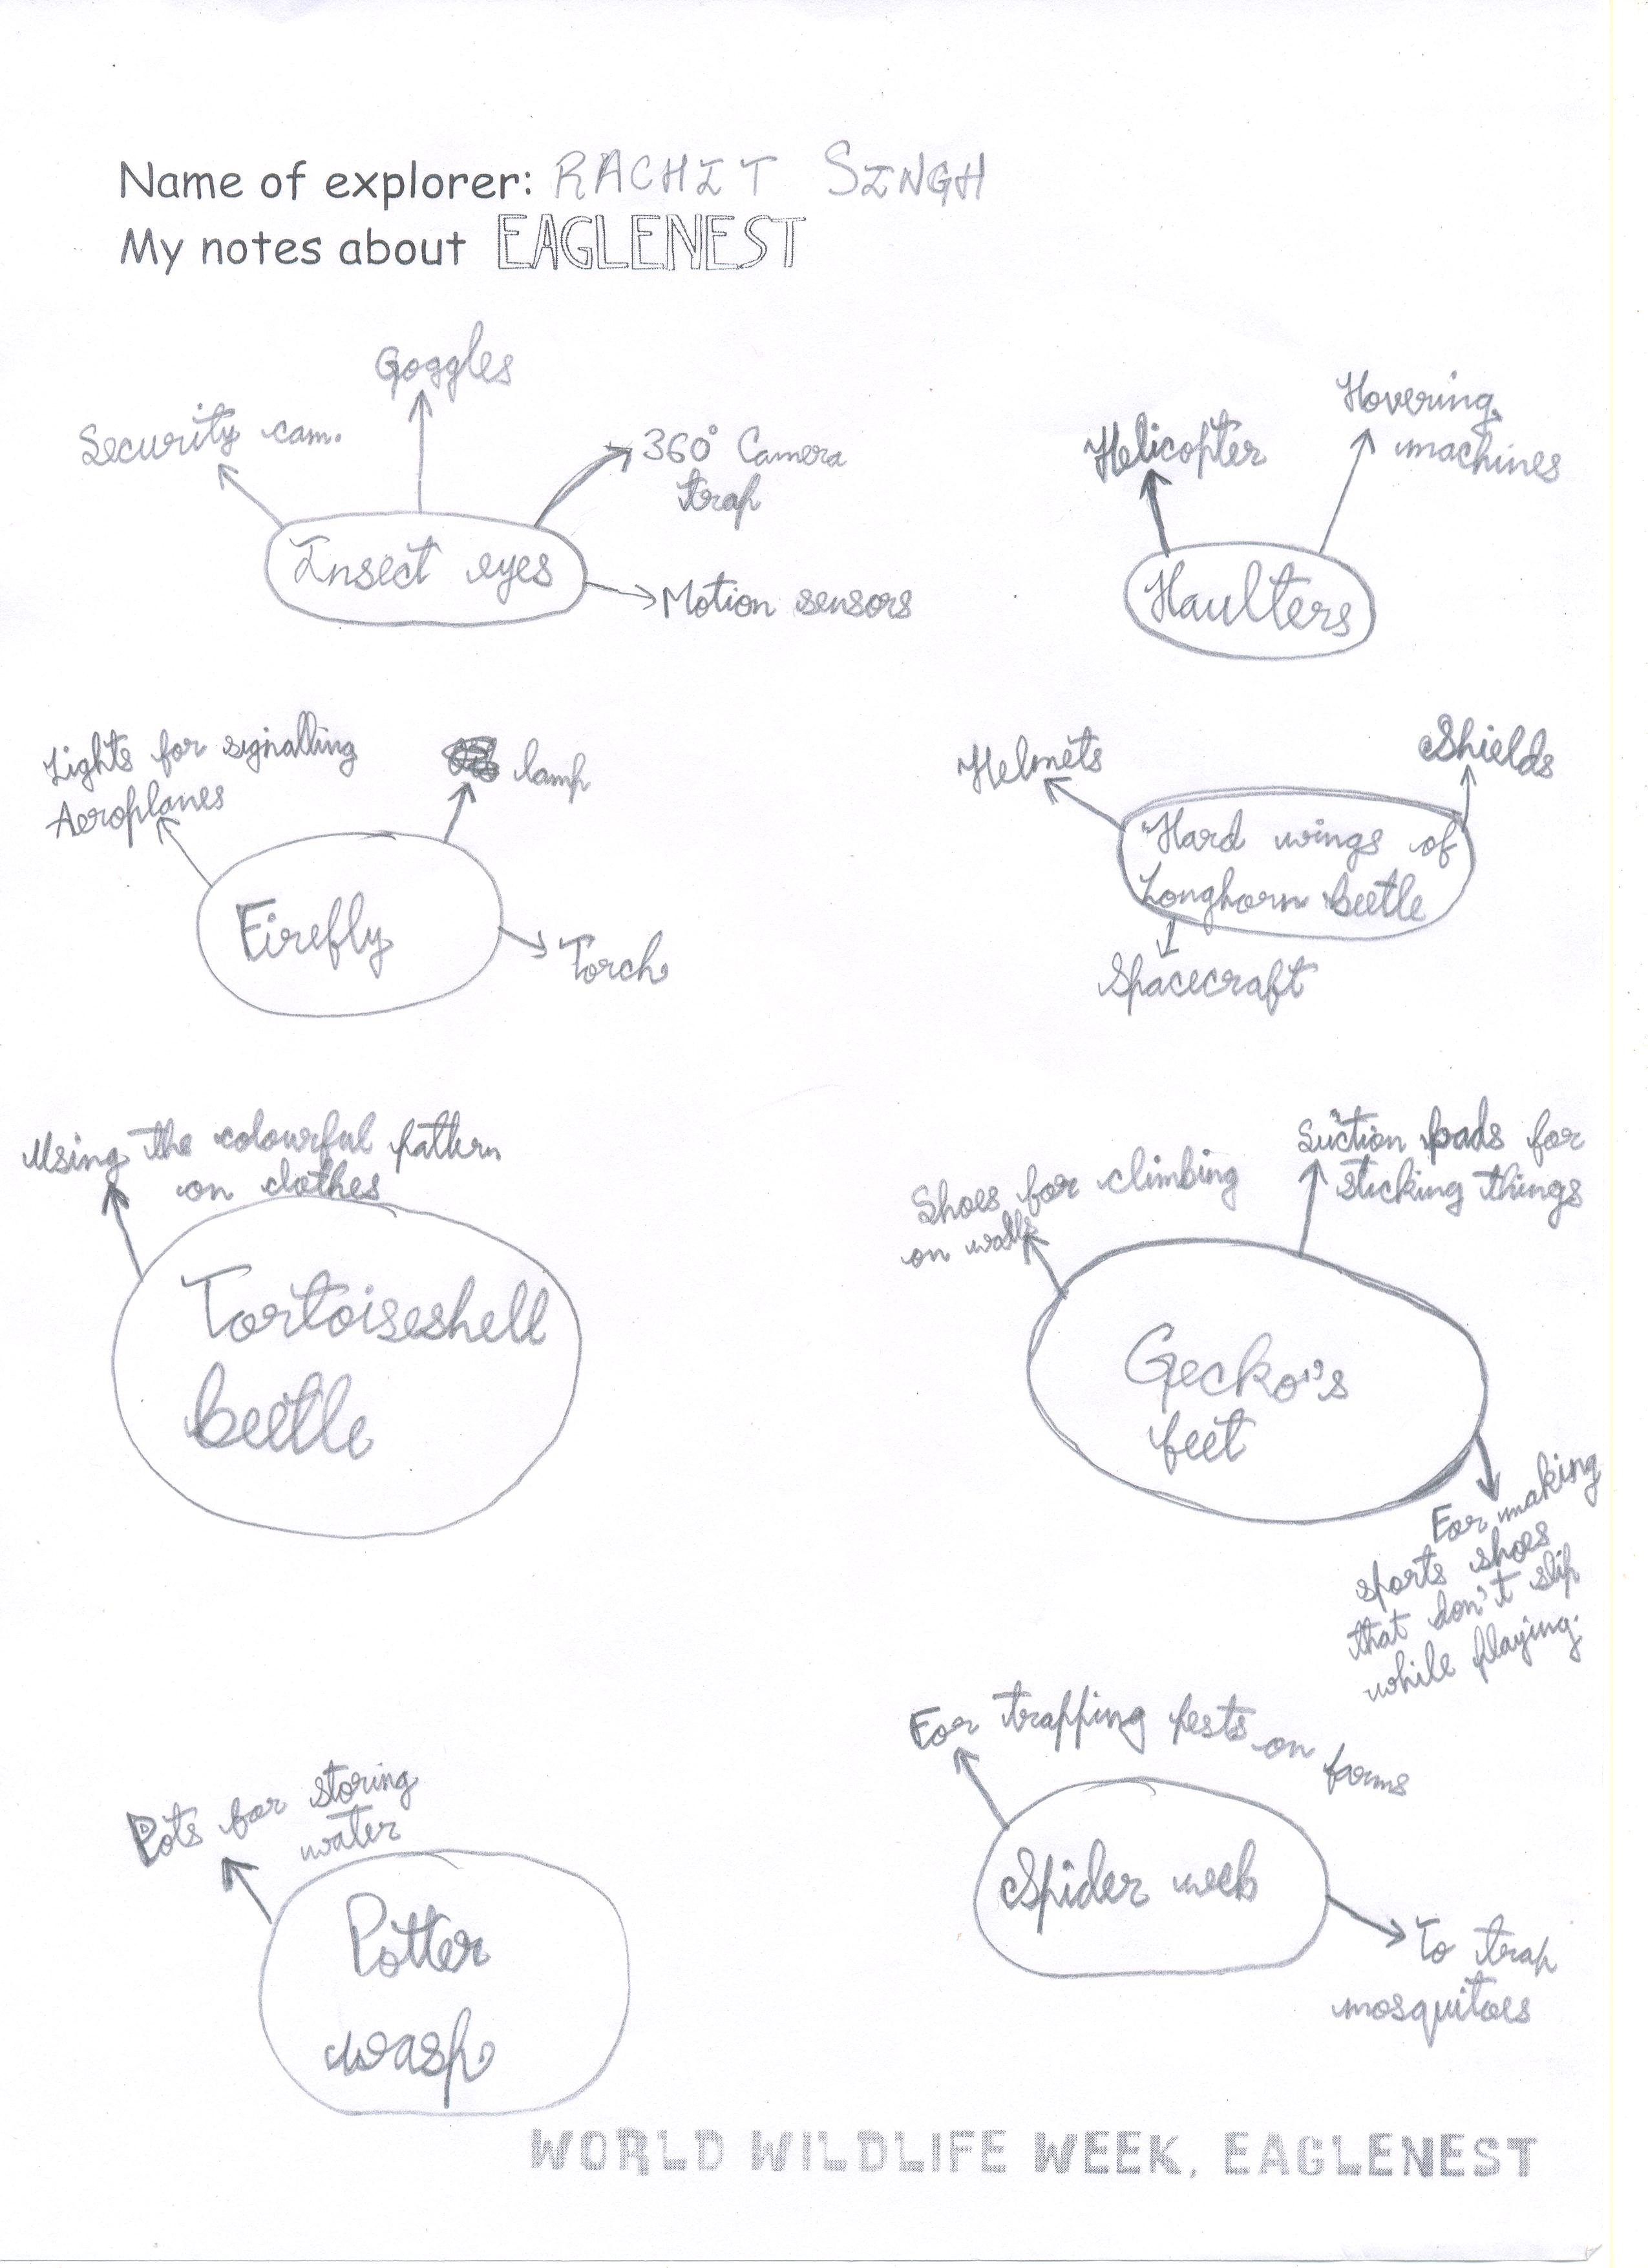 Name of explorer: RACHIT SINGH
My notes about EAGLENEST
Goggles
Security cam.
360° Camera
trap
Motion sensors
Insect eyes
Helicopter
Hovering
machines
Haulters
Lights for signalling
Aeroplanes
lamp
Torch
Firefly
Helmets
Shields
Hard wings of
Longhorn beetle
Spacecraft
Using the colourful pattern
on clothes
Tortoiseshell
beetle
Shoes for climbing
on walls
Suction pads for
sticking things
Gecko's
feet
For making
sports shoes
that don't slip
while playing.
Pots for storing
water
Potter
wasp
For trapping pests on farms
Spider web
To trap
mosquitoes
WORLD WILDLIFE WEEK, EAGLENEST